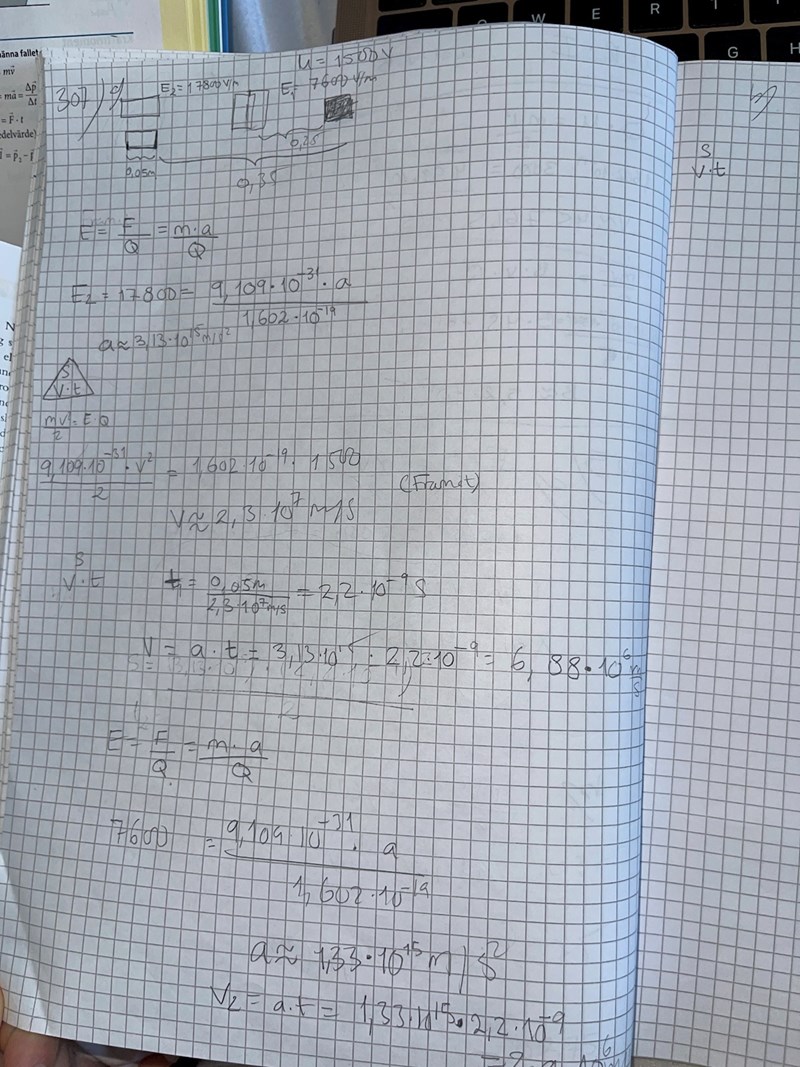 änna fallet
mv̄
= mā = Δp̄/Δt
= F̄ · t
edelvärde)
Ī = p̄₂ - p̄
W E R T
G H
U = 1500 V
307)
E₂ = 17800 V/m E₁ 7600 V/m
0,25
0,05m
0,35
E = F/Q = m·a/Q
E₂ = 17800 = 9,109·10⁻³¹·a / 1,602·10⁻¹⁹
a ≈ 3,13·10¹⁵ m/s²
S
V·t
mv²/2 = E·Q
9,109·10⁻³¹·v²/2 = 1,602·10⁻¹⁹·1500
(Framåt)
V ≈ 2,3·10⁷ m/s
S
V·t
t₁ = 0,05m / 2,3·10⁷ m/s = 2,2·10⁻⁹ s
V = a·t = 3,13·10¹⁵·2,2·10⁻⁹ = 6,88·10⁶ m/s
E = F/Q = m·a/Q
7600 = 9,109·10⁻³¹·a / 1,602·10⁻¹⁹
a ≈ 1,33·10¹⁵ m/s²
V₂ = a·t = 1,33·10¹⁵·2,2·10⁻⁹
S
V·t